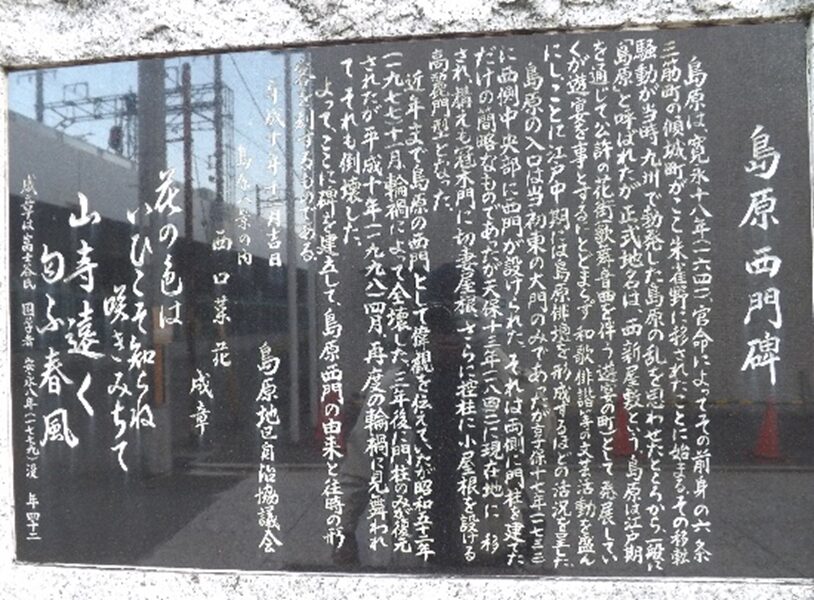 島原西門碑
島原は、寛永十八年(一六四一)官命によってその前身の六条
三筋町の傾城町がここ朱雀野に移されたことに始まる。その移転
騒動が当時九州で勃発した島原の乱を思わせたところから、一般に
「島原」と呼ばれたが、正式地名は「西新屋敷」という。島原は江戸期
を通じて公許の花街(歌舞音曲を伴う遊宴の町)として発展してい
くが、遊宴を事とするにとどまらず、和歌俳諧等の文芸活動も盛ん
にしことに江戸中期には島原俳壇を形成するほどの活況を呈した。
島原の入口は当初東の大門のみであったが、享保十七年(一七三二)
に西側中央部に西門が設けられた。それは両側に門柱を建てた
だけの簡略なものであったが、天保十三年(一八四二)に現在地に移
され、構えも冠木門に切妻屋根、さらに控柱に小屋根を設ける
高麗門型となった。
近年まで島原の西門として偉観を伝えていたが、昭和五十二年
(一九七七)十一月輪禍によって全壊した。三年後に門柱のみが復元
されたが、平成十年(一九九八)四月、再度の輪禍に見舞われ
て、それも倒壊した。
よって、ここに碑を建立して、島原西門の由来と往時の形
容を刻するものである。
平成十年十一月吉日
島原地区自治協議会
島原八景の内
西口菜花
成章
花の色は
いひこそ知らね
咲きみちて
山寺遠く
匂ふ春風
成章は富士谷氏 国学者 安永八年(一七七九)没 年四十二